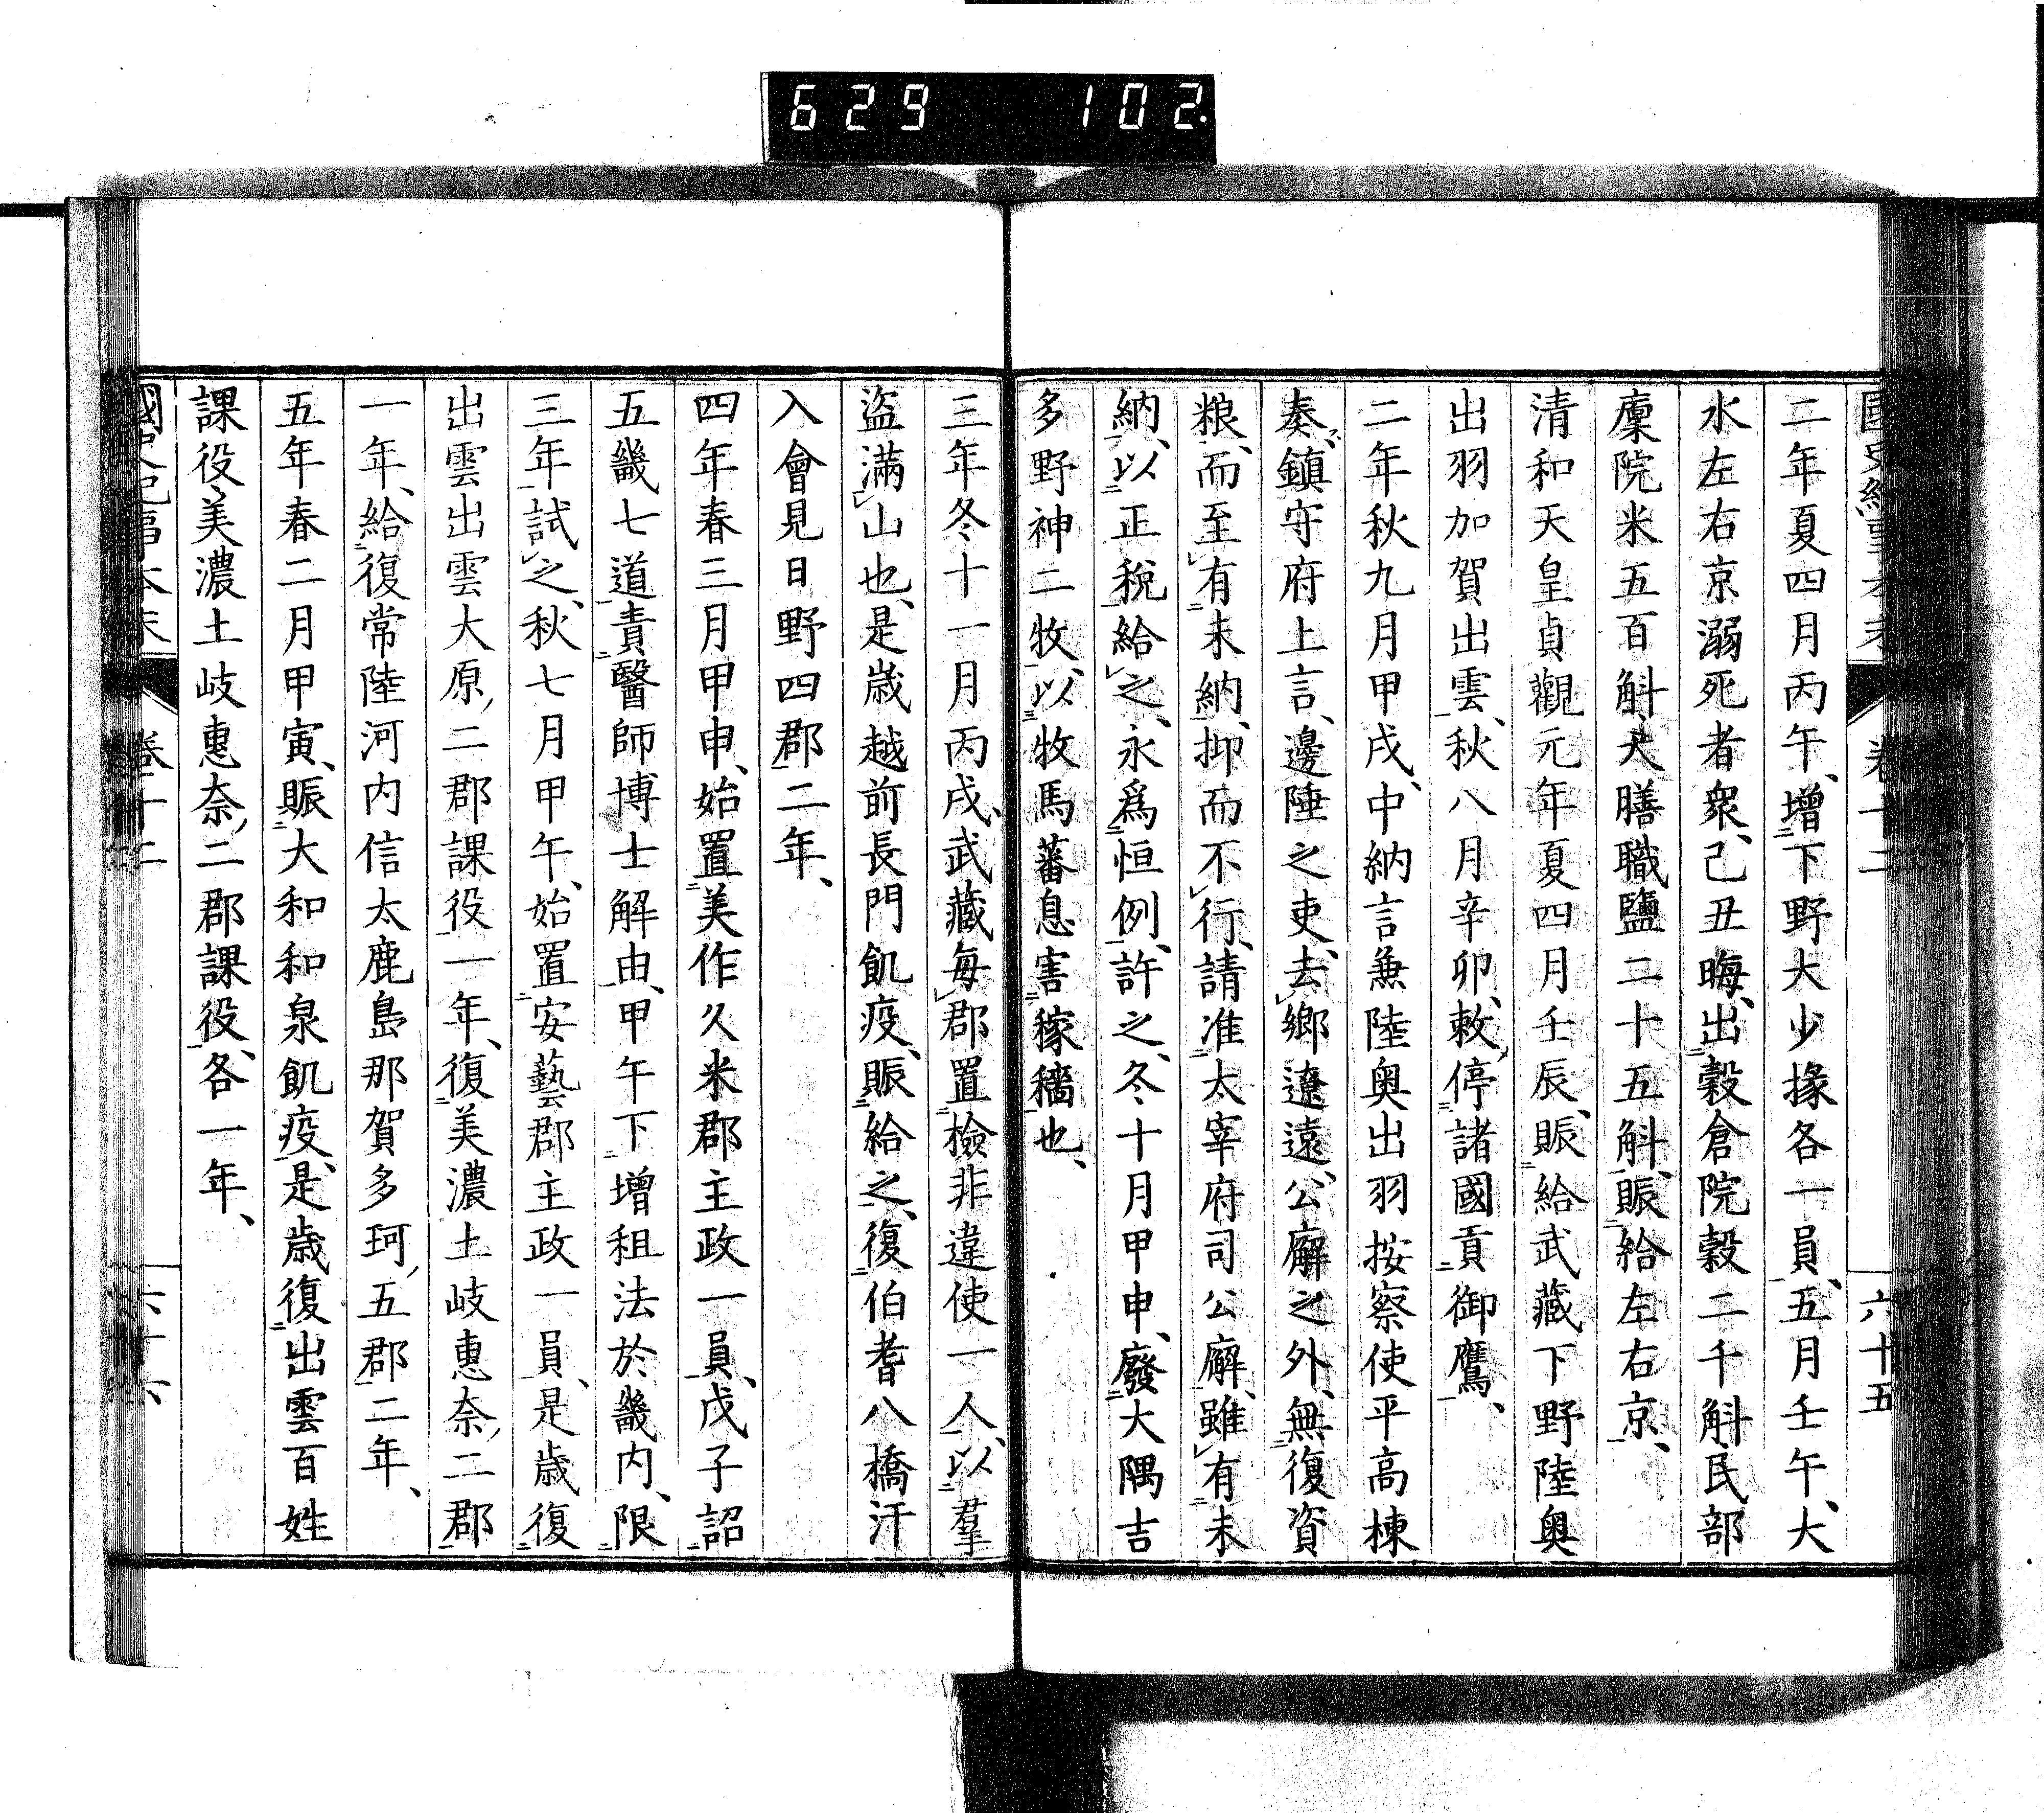 629 102.
國史紀事本末 卷十二 六十五
二年夏四月丙午、增下野大少掾各一員、五月壬午、大
水左右京溺死者衆、己丑晦、出穀倉院穀二千斛民部
廩院米五百斛大膳職鹽二十五斛、賑給左右京、
清和天皇貞觀元年夏四月壬辰、賑給武藏下野陸奥
出羽加賀出雲、秋八月辛卯、敕停諸國貢御鷹、
二年秋九月甲戌、中納言兼陸奥出羽按察使平高棟
奏、鎮守府上言、邊陲之吏、去鄉遼遠、公廨之外、無復資
粮、而至有未納、抑而不行、請准太宰府司公廨、雖有未
納、以正稅給之、永爲恒例、許之、冬十月甲申、廢大隅吉
多野神二牧、以牧馬蕃息害稼穡也、
三年冬十一月丙戌、武藏每郡置檢非違使一人、以羣
盜滿山也、是歲越前長門飢疫、賑給之、復伯耆八橋汗
入會見日野四郡二年、
四年春三月甲申、始置美作久米郡主政一員、戊子詔
五畿七道責醫師博士解由、甲午下增租法於畿内、限
三年試之、秋七月甲午、始置安藝郡主政一員、是歲復
出雲出雲大原二郡課役一年、復美濃土岐惠奈二郡
一年、給復常陸河内信太鹿島那賀多珂五郡二年、
五年春二月甲寅、賑大和和泉飢疫、是歲復出雲百姓
課役、美濃土岐惠奈二郡課役、各一年、
國史紀事本末 卷十二 六十六